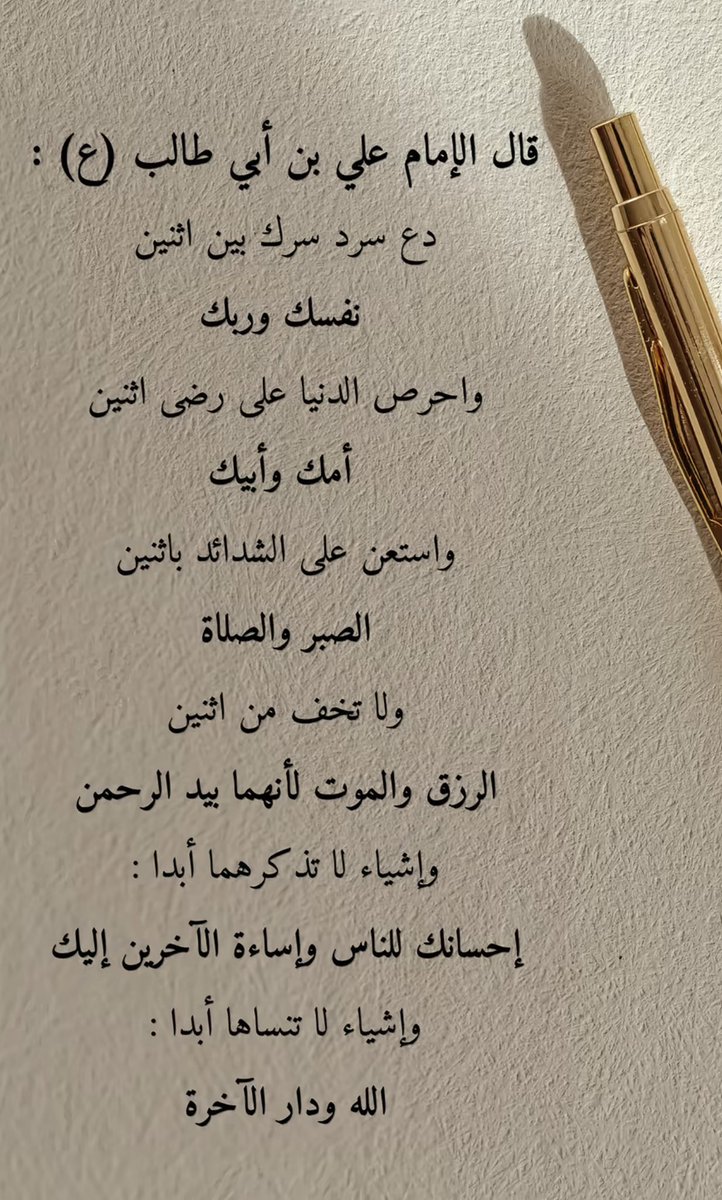 قال الإمام علي بن أبي طالب (ع) :
دع سرد سرك بين اثنين
نفسك وربك
واحرص الدنيا على رضى اثنين
أمك وأبيك
واستعن على الشدائد باثنين
الصبر والصلاة
ولا تخف من اثنين
الرزق والموت لأنهما بيد الرحمن
وإشياء لا تذكرهما أبدا :
إحسانك للناس وإساءة الآخرين إليك
وإشياء لا تنساها أبدا :
الله ودار الآخرة